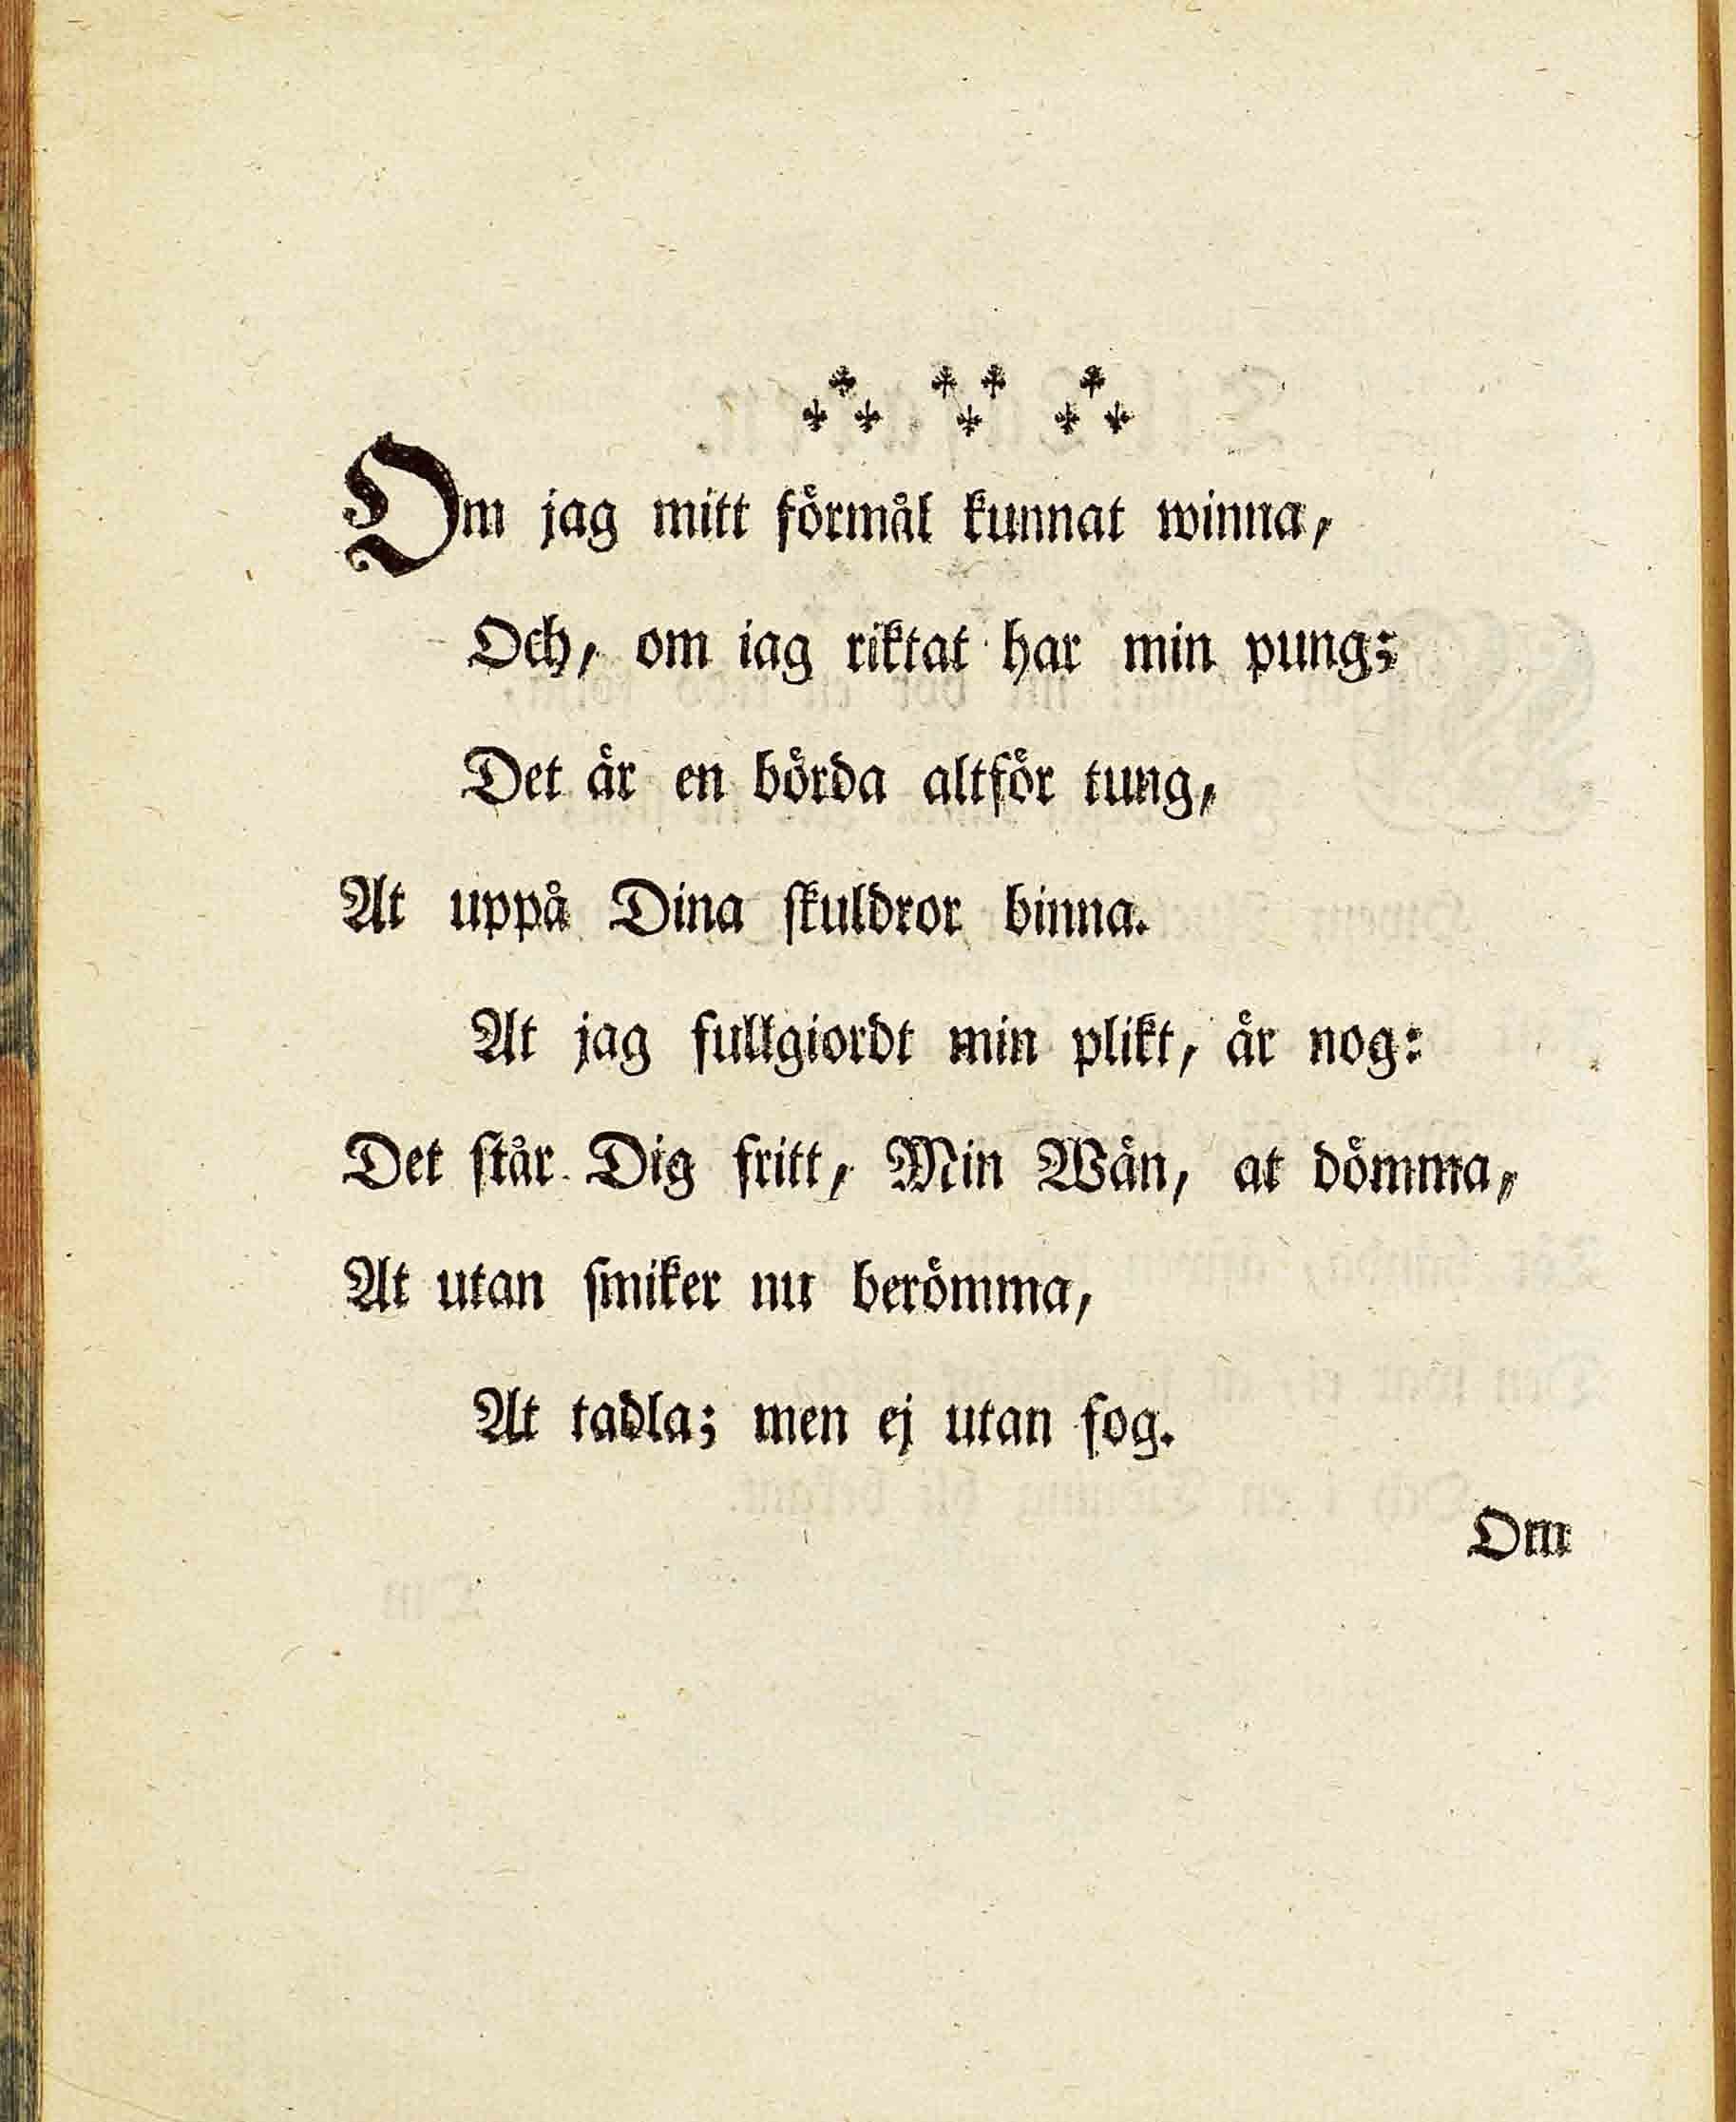 Om jag mitt förmål kunnat winna,
Och, om iag riktat har min pung;
Det är en börda altför tung,
At uppå Dina skuldror binna.
At jag fullgiordt min plikt, är nog:
Det står Dig fritt, Min Wän, at dömma,
At utan smiker nu berömma,
At tadla; men ej utan fog.
Om